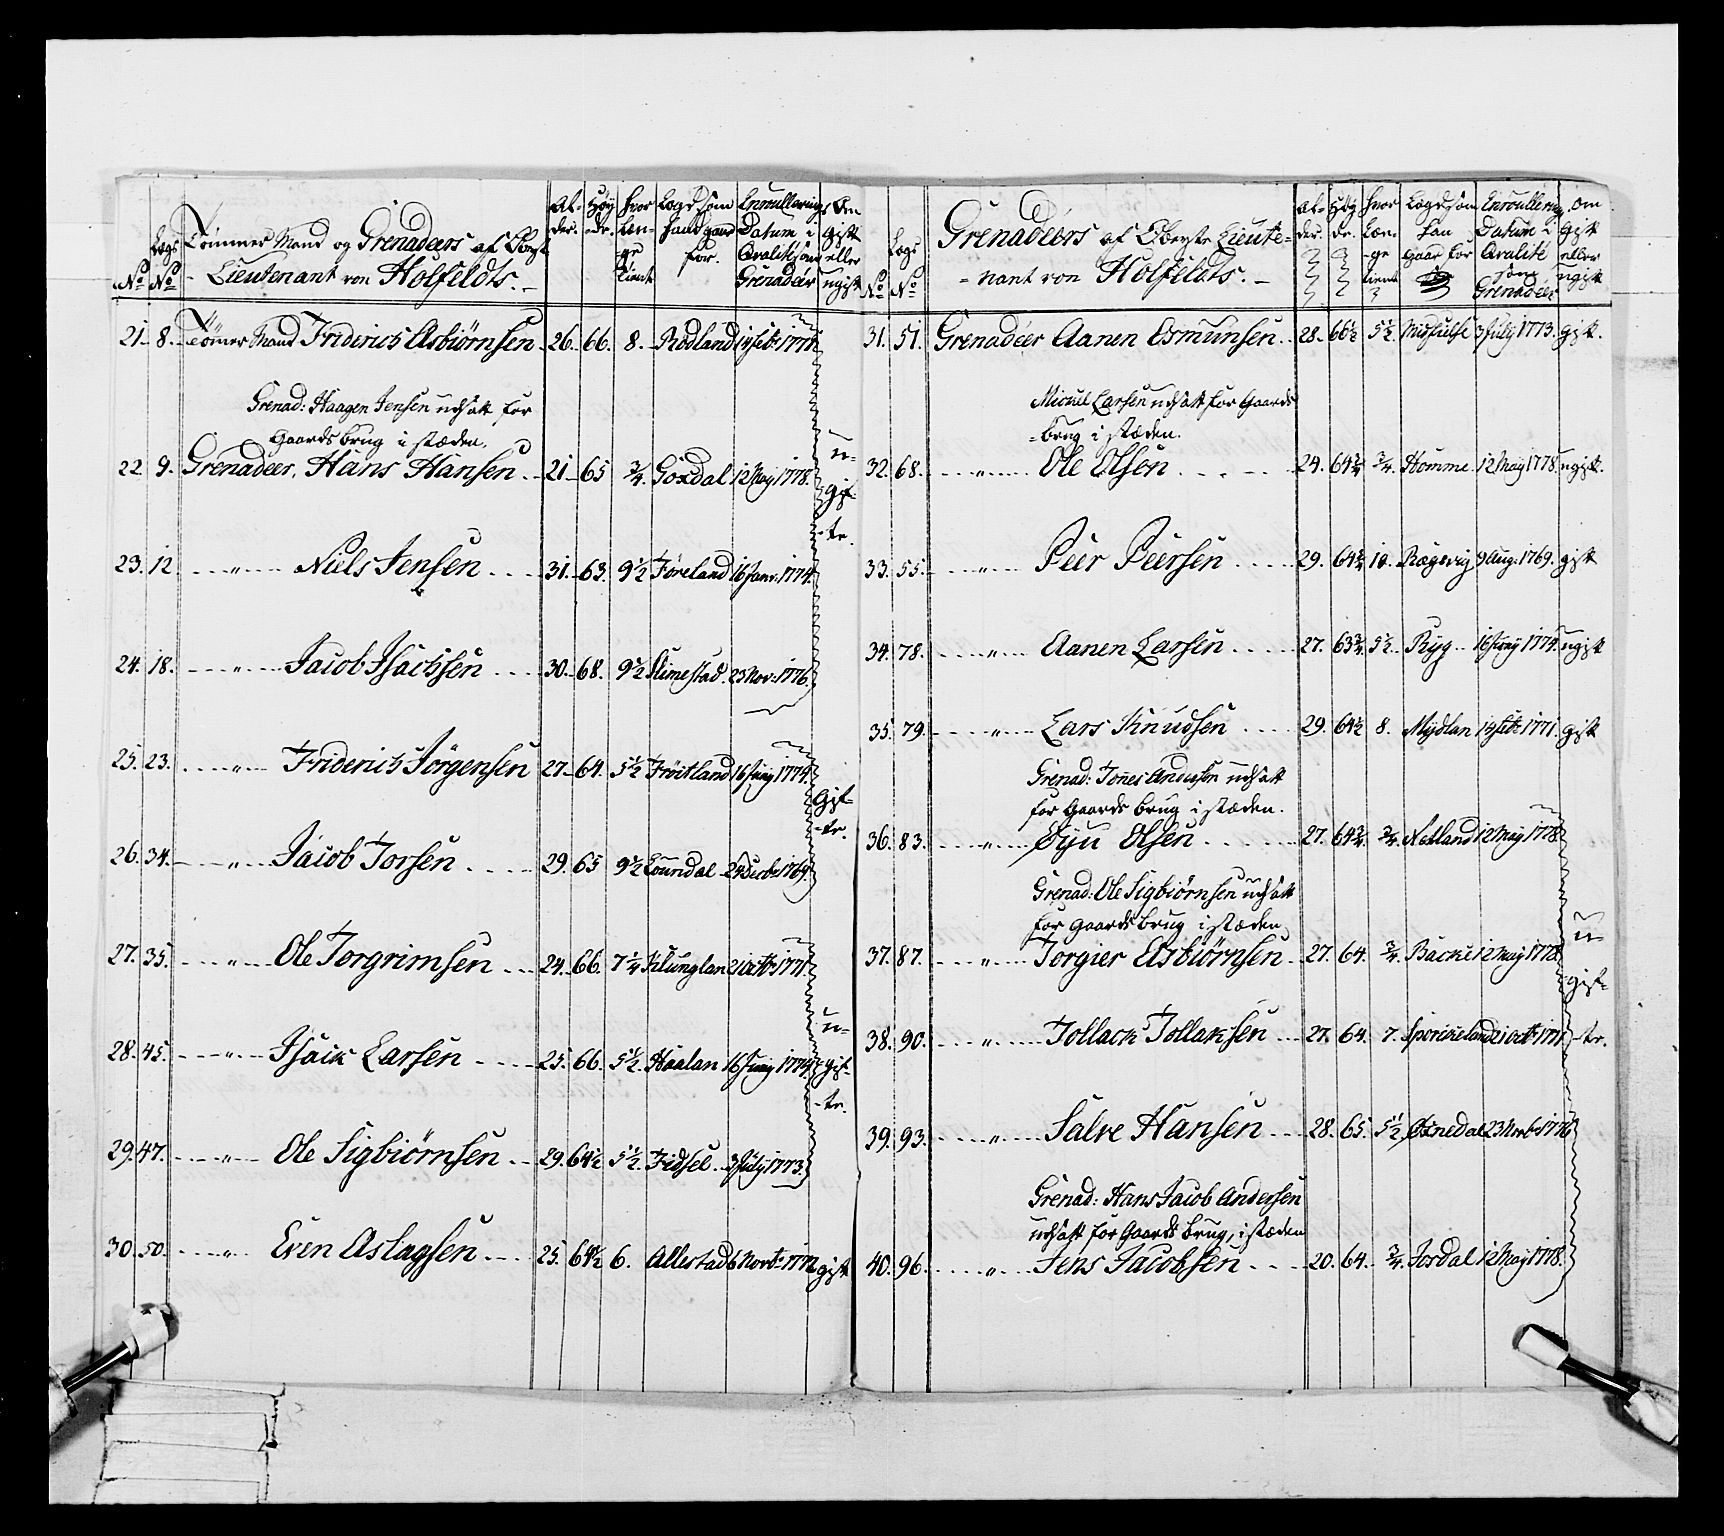 No
Lægs No
Tömmer Mand og Grenadeers af Oberst
Lieutenant von Holfeldts.
Al-
der.
Høy
de.
hvor
Læn-
ge
tient
Lægd som
hand gaar
for.
Enroullerings
Datum i
Qvalité som
Grenadéer
Om
gift
eller
ugift
21. 8. Tömer Mand Friderich Asbiörnsen 26. 66. 8. Rødland
Grenad: Haagen Jensen udsatt for
Gaards brug i stæden.
22 9. Grenadeer, Hans Hansen 21 65 3/4. Goxdal 12 May 1778.
23. 12 " Niels Jensen 31. 63. 9 1/2 Föreland 16 Janv: 1774.
24. 18. " Jacob Isachsen 30. 68. 9 1/2 Slimestad 23 Nov: 1776.
u-
gif-
te.
25. 23. " Friderich Jörgensen 27. 64. 5 1/2 Fröitland 16 Juny 1774.
26. 34. " Jacob Torsen 29. 65 9 1/2 Loundal 24 Decbr 1769.
Gif-
te.
27. 35. " Ole Torgrimsen 24. 66. 7 1/4 Klunglan 21 Octbr: 1771.
28. 45. " Isaik Larsen 25. 66. 5 1/2. Haalan 16 Juny 1774.
29. 47. " Ole Sigbiörnsen 29. 64 1/2 5 1/2. Fidsel 3 July 1773.
u-
gif-
te.
30. 50. " Even Aslagsen 25. 64 1/2 6. Allestad 6 Novbr: gift
No
Lægs
No
Grenadéers af Oberste Lieute-
nant von Holfeldts.
Al-
der.
Høy
de.
hvor
Læn-
ge
tient
Lægd som
han
gaar for
Enroullering
Datum i
Qvalité
som
Grenadéer
om
gift
eller
ugift
31. 51. Grenadéer Aanen Osmunsen 28. 66 1/2 5 1/2. 3 July 1773. gift.
Michel Larsen udsatt for Gaards
brug i stæden.
32. 68. " Ole Olsen 24. 64 3/4. 3/4. Homme 12 May 1778. ugift.
33. 55. " Peer Peersen 29. 64 3/4 10. Rægevig 9 Aug. 1769. gift
34. 78. " Aanen Larsen 27. 63 3/4. 5 1/2. Ryg 16 Juny 1774. ugift
35. 79. " Lars Knudsen 29. 64 1/2 8. Mydlan 1771. gift
Grenad: Jones Andersen udsatt
for Gaards brug i stæden.
36. 83. " Siju Olsen 27. 64 3/4. 3/4. Netland 12 May 1778
Grenad: Ole Sigbiörnsen udsatt
for Gaards brug i stæden
37. 87. " Torgier Asbiörnsen 27. 64. 3/4. Backe 12 May 1778
38. 90. " Tollack Tollaksen 27. 64. 7. 21 Octbr 1771
39. 93. " Salve Hansen 28. 65. 5 1/2 Øxnedal 23 Novbr 1776
Grenad: Hans Jacob Andersen
udsatt for Gaards brug, i stæden
40. 96. " Jens Jacobsen 20. 64. 3/4. Josdal 12 May 1778.
u-
gif-
te.